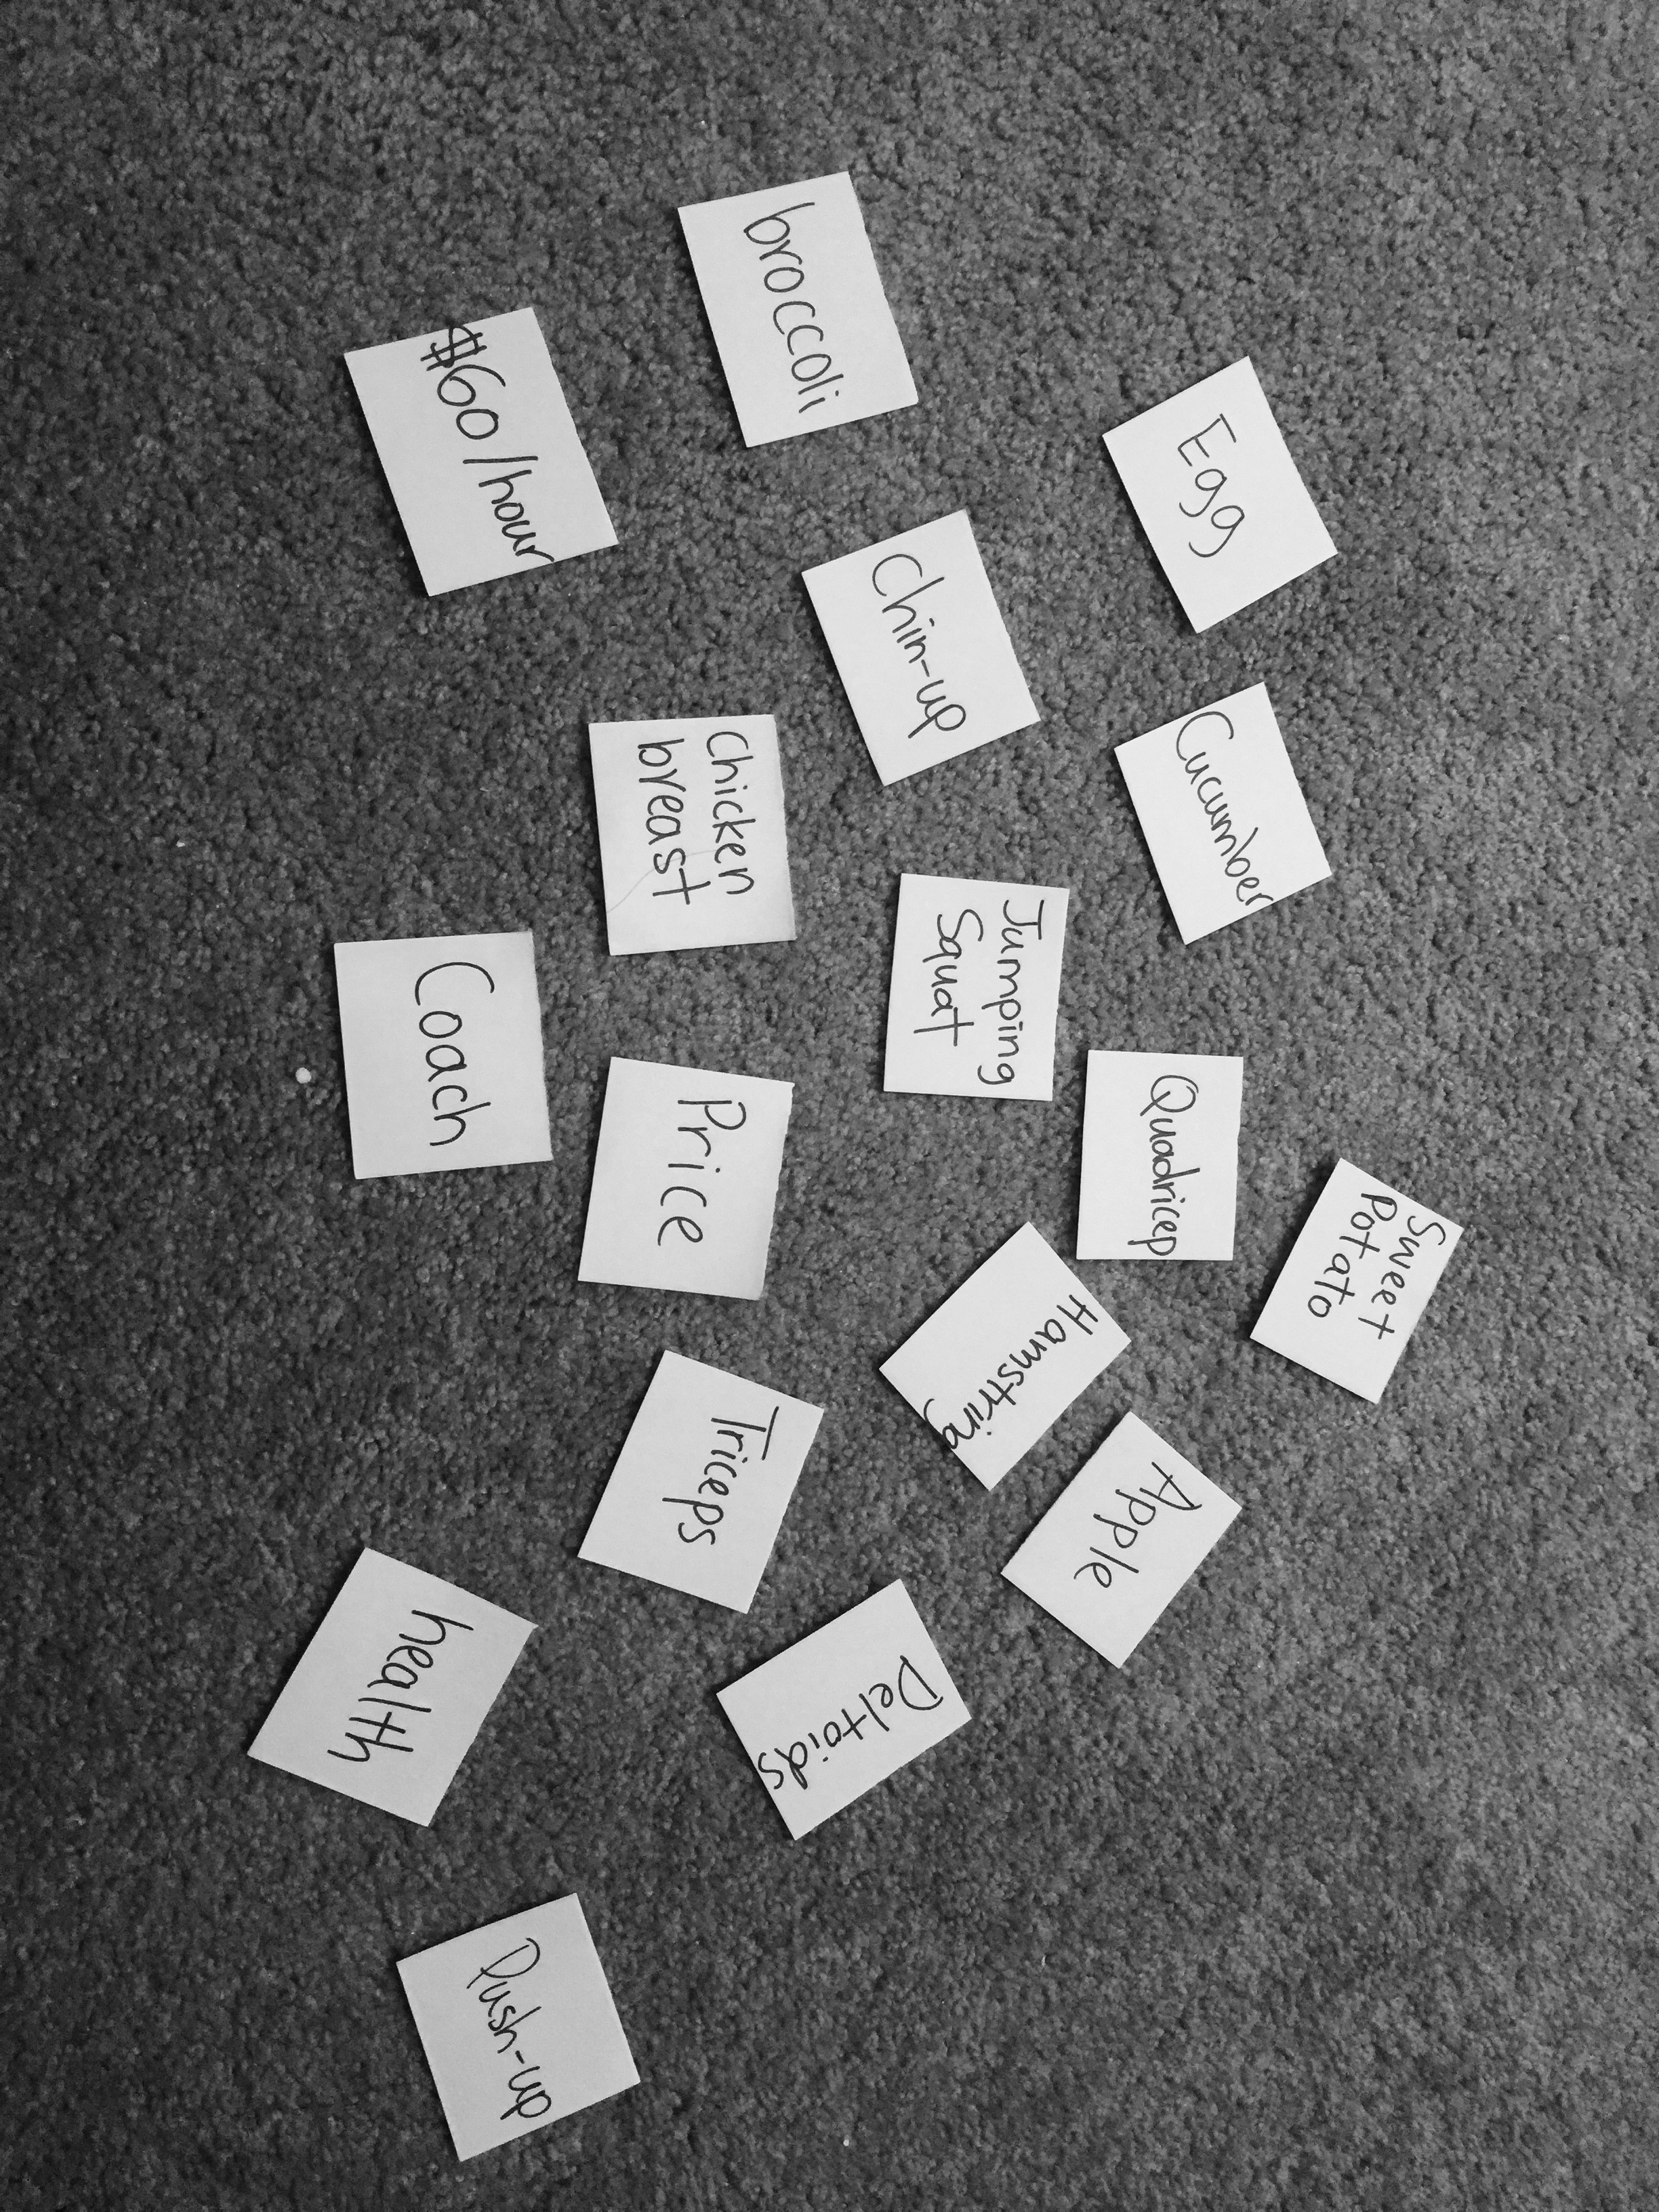 broccoli
$60/hour
Egg
Chin-up
Cucumber
Chicken
breast
Jumping
Squat
Coach
Price
Quadricep
Sweet
Potato
Hamstring
Triceps
Apple
health
Deltoids
Push-up